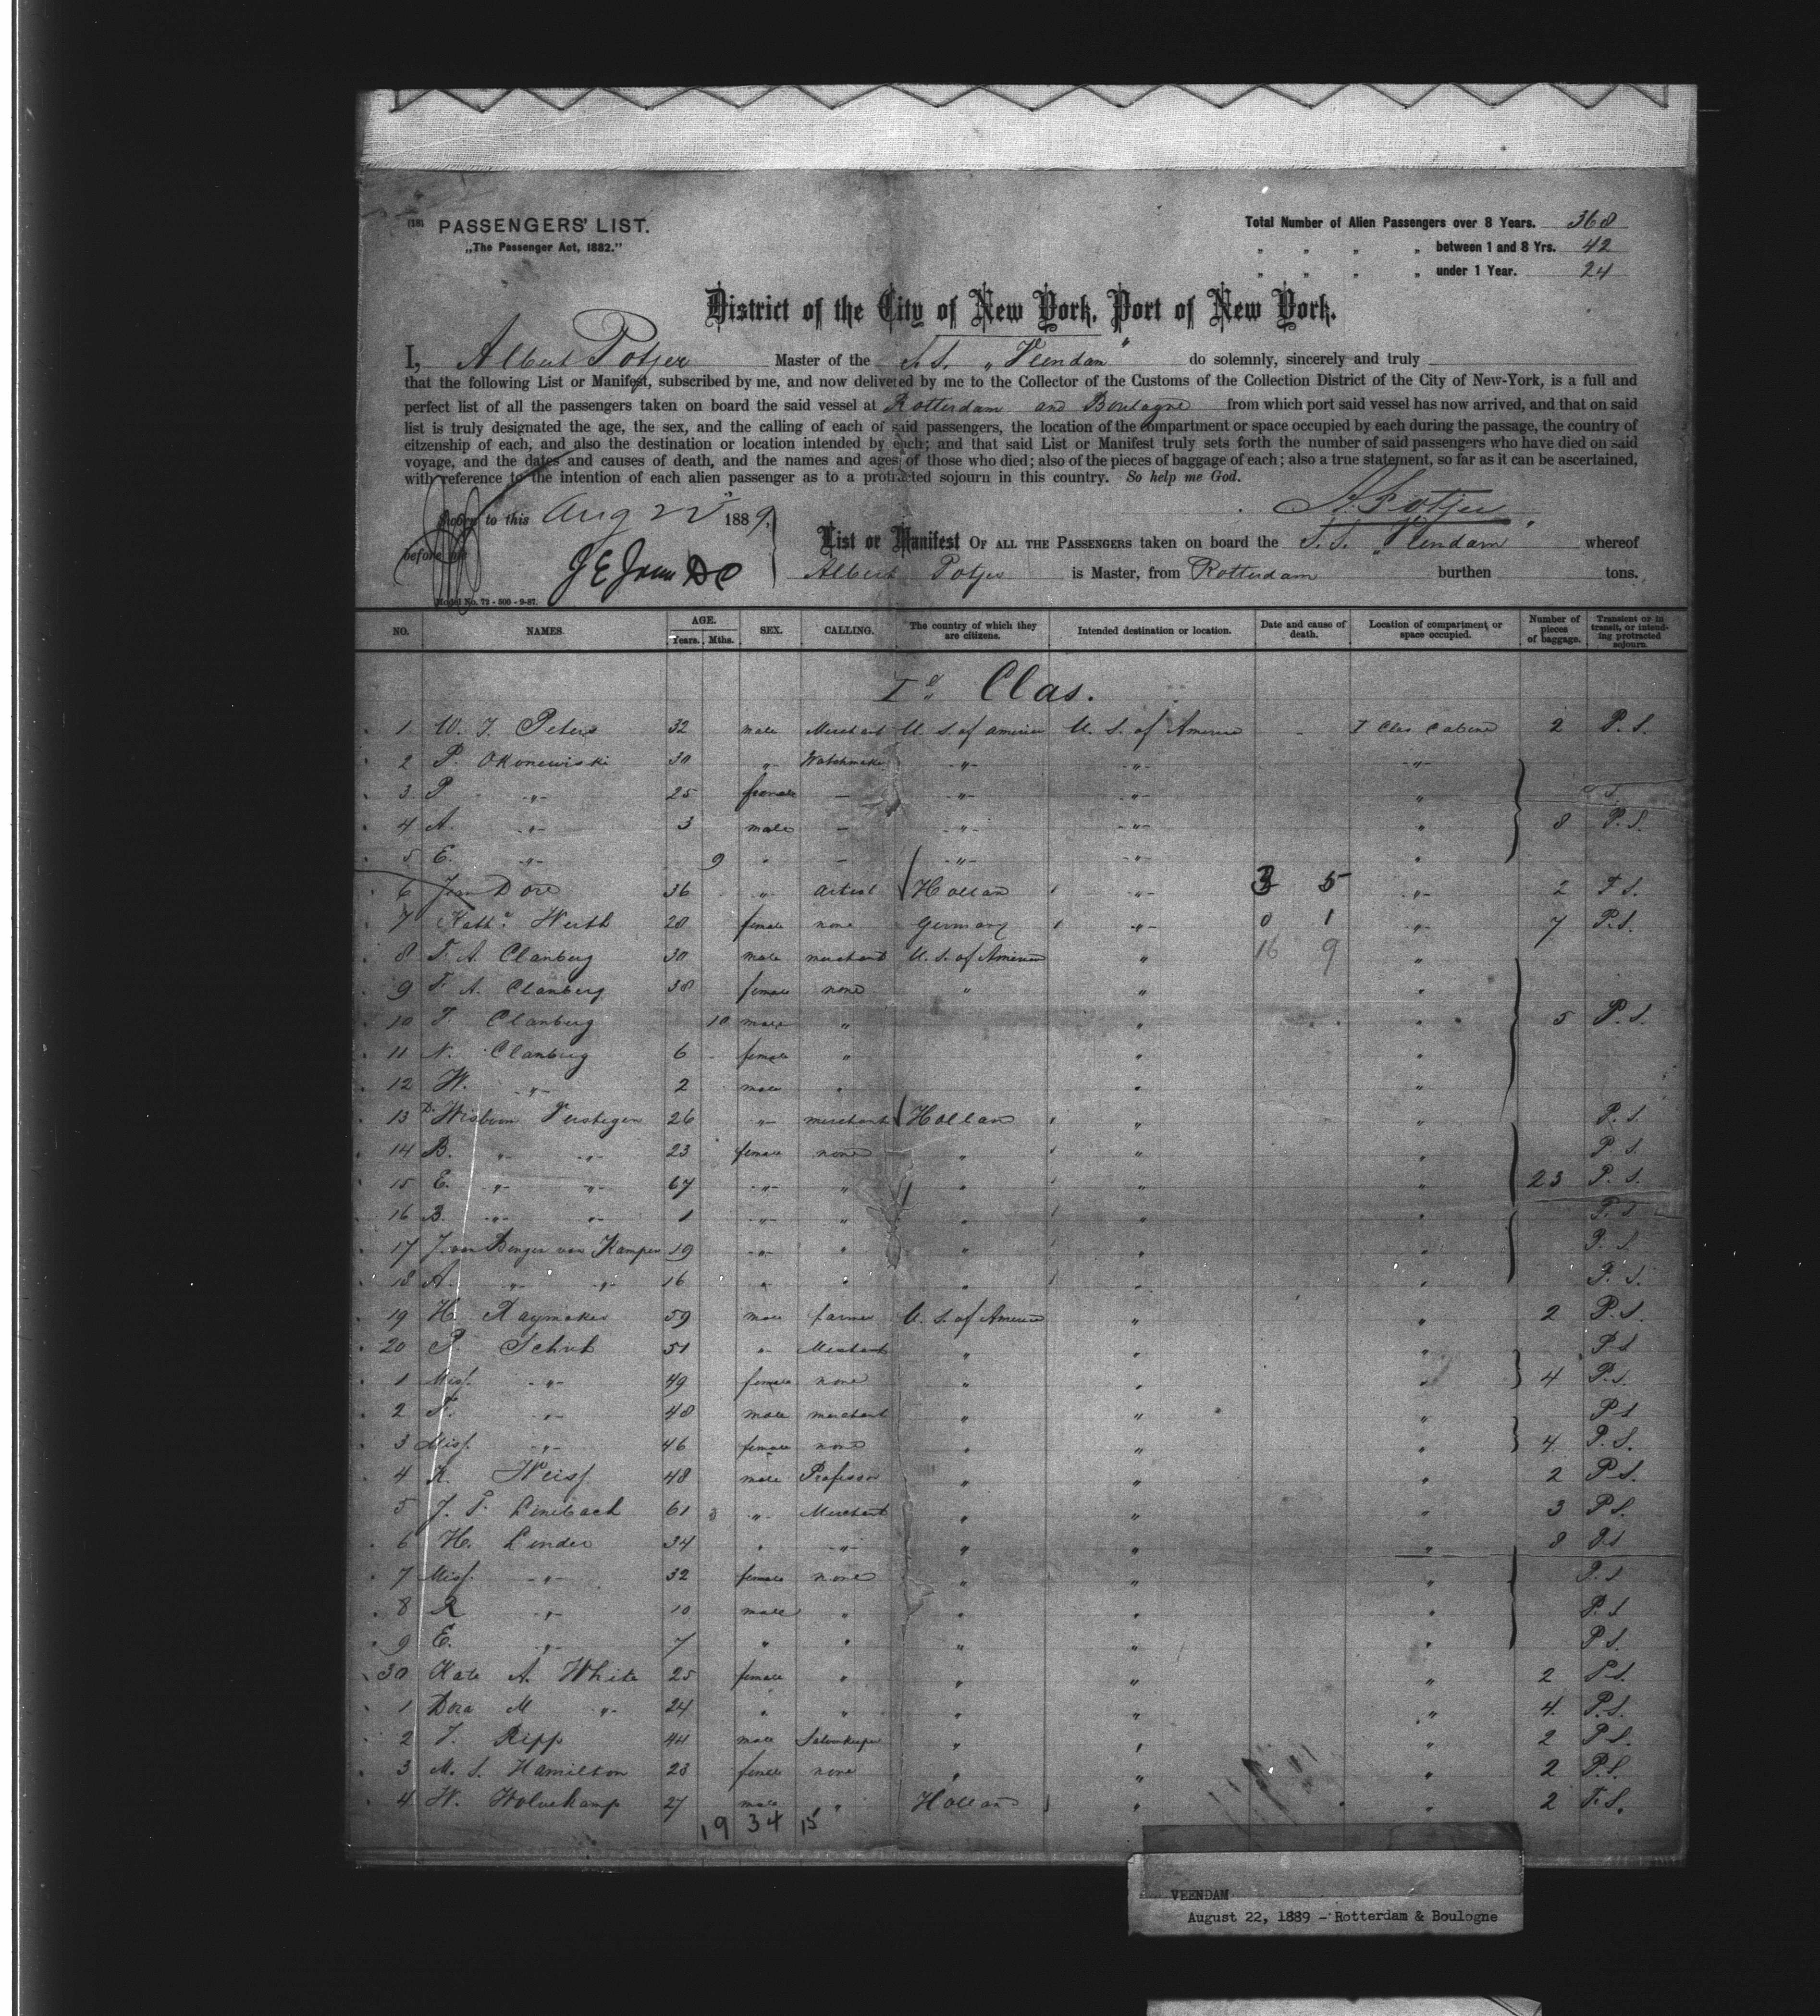 (18) PASSENGERS' LIST.
„The Passenger Act, 1882."
Total Number of Alien Passengers over 8 Years. 368
„ „ „ „ between 1 and 8 Yrs. 42
„ „ „ „ under 1 Year. 24
District of the City of New York, Port of New York.
I, Albert Potjer Master of the S.S. „Veendam" do solemnly, sincerely and truly
that the following List or Manifest, subscribed by me, and now delivered by me to the Collector of the Customs of the Collection District of the City of New-York, is a full and
perfect list of all the passengers taken on board the said vessel at Rotterdam and Boulogne from which port said vessel has now arrived, and that on said
list is truly designated the age, the sex, and the calling of each of said passengers, the location of the compartment or space occupied by each during the passage, the country of
citzenship of each, and also the destination or location intended by each; and that said List or Manifest truly sets forth the number of said passengers who have died on said
voyage, and the dates and causes of death, and the names and ages of those who died; also of the pieces of baggage of each; also a true statement, so far as it can be ascertained,
with reference to the intention of each alien passenger as to a protracted sojourn in this country. So help me God.
A. Potjer
to this Aug 22 1889.
before me
List or Manifest OF ALL THE PASSENGERS taken on board the S.S. „Veendam" whereof
Albert Potjer is Master, from Rotterdam burthen tons.
Model No. 72 - 500 - 9-87.
NO. NAMES. AGE. Years. Mths. SEX. CALLING. The country of which they are citizens. Intended destination or location. Date and cause of death. Location of compartment or space occupied. Number of pieces of baggage. Transient or in transit, or intending protracted sojourn.
Ie Clas.
1 W. J. Peters 32 male Merchant U. S. of America U. S. of America - I Clas Cabine 2 P. S.
2 P. Okonewiski 30 „ Watchmaker „ „ „
3 P „ 25 female — „ „ „
4 A. „ 3 male — „ „ „ 8 P. S.
5 E. „ 9 „ — „ „ „
6 Jean Dore 36 „ Artist Holland „ 3 5 „ 2 P. S.
7 Kath. Werth 20 female none Germany „ 0 1 „ 7 P. S.
8 F. A. Clanberg 30 male merchant U. S. of America „ 16 9 „
9 F. A. Clanberg 38 female none „ „ „
10 F. Clanberg 10 male „ „ „ 5 P. S.
11 N. Clanberg 6 female „ „ „
12 W. „ 2 male „ „ „
13 Wisboom Verstegen 26 „ merchant Holland „ „ P. S.
14 B. „ „ 23 female none „ „ „ P. S.
15 E. „ „ 67 „ „ „ „ „ 23 P. S.
16 B. „ „ 1 „ „ „ „ „ P. S.
17 J. van Kampen 19 „ „ „ „ „ P. S.
18 A. „ „ 16 „ „ „ „ „ P. S.
19 H. Raymaker 59 male farmer U. S. of America „ „ 2 P. S.
20 P. Schuh 51 „ Merchant „ „ „ P. S.
1 Miss. „ 49 female none „ „ „ 4 P. S.
2 „ 48 male merchant „ „ „ P. S.
3 Miss. „ 46 female none „ „ „ 4 P. S.
4 K. Weiss. 48 male Professor „ „ „ 2 P. S.
5 J. F. Linebach 61 „ Merchant „ „ „ 3 P. S.
6 H. Linder 34 „ „ „ „ „ 8 P. S.
7 Miss. „ 32 female none „ „ „ P. S.
8 R „ 10 male „ „ „ „ P. S.
9 E. „ 7 „ „ „ „ „ P. S.
30 Kate A. White 25 female „ „ „ „ 2 P. S.
1 Dora M „ 24 „ „ „ „ „ 4 P. S.
2 J. Ripp 44 male Saloonkeeper „ „ „ 2 P. S.
3 M. S. Hamilton 23 female none „ „ „ 2 P. S.
4 W. Wolvekamp 27 male „ Holland „ „ 2 P. S.
19 34 15
VEENDAM
August 22, 1889 - Rotterdam & Boulogne